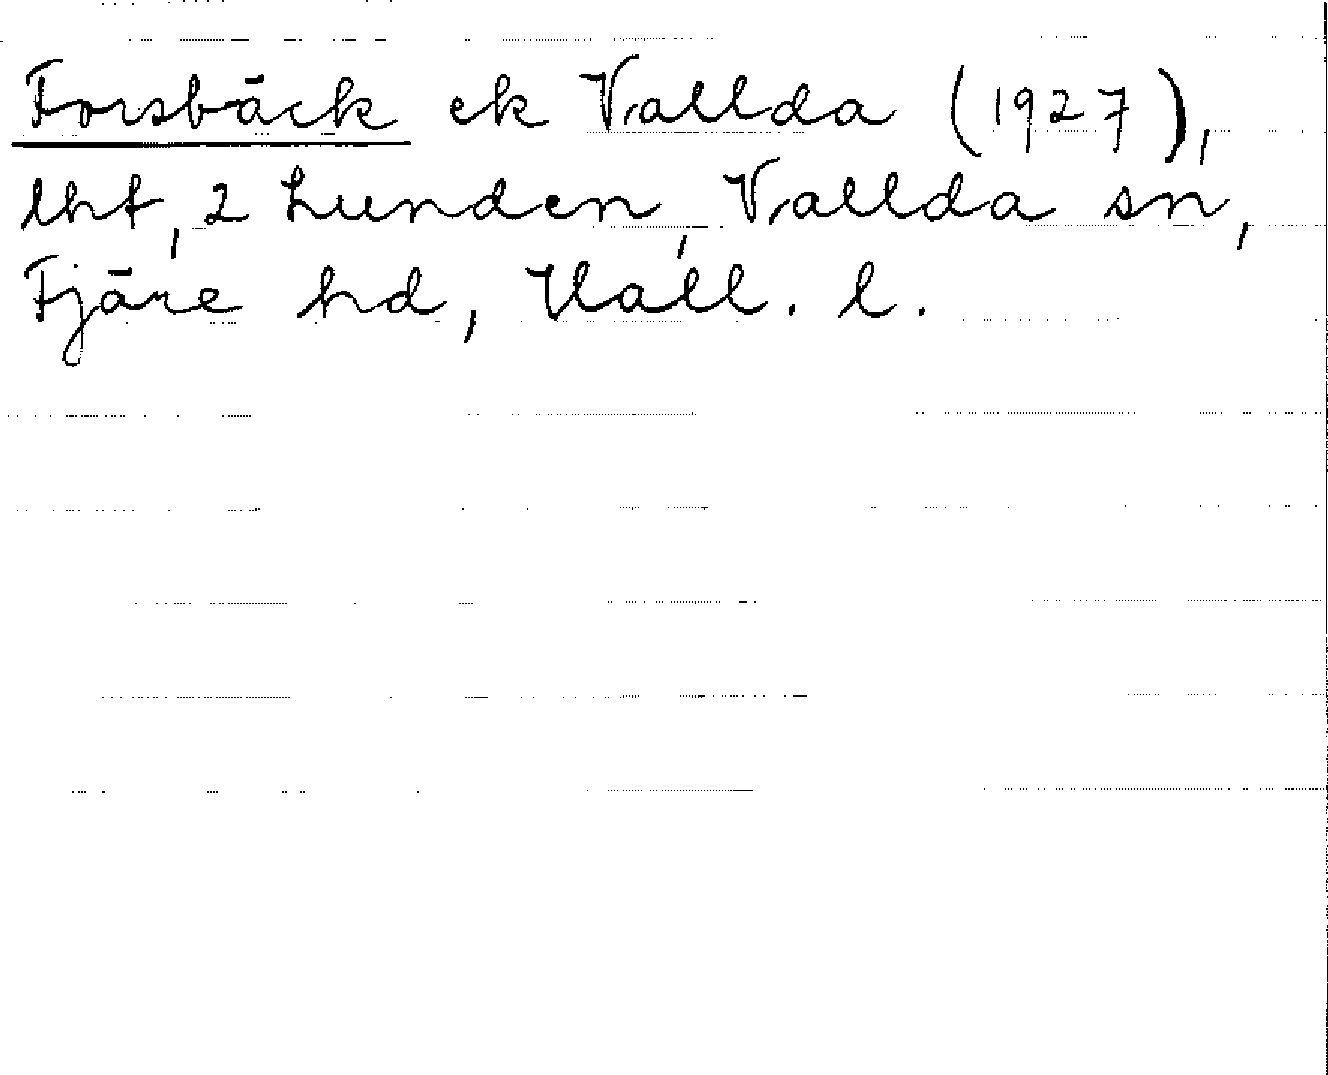 Forsbäck ek Vallda (1927),
lht, 2 Lunden, Vallda sn,
Fjäre hd, Hall. l.